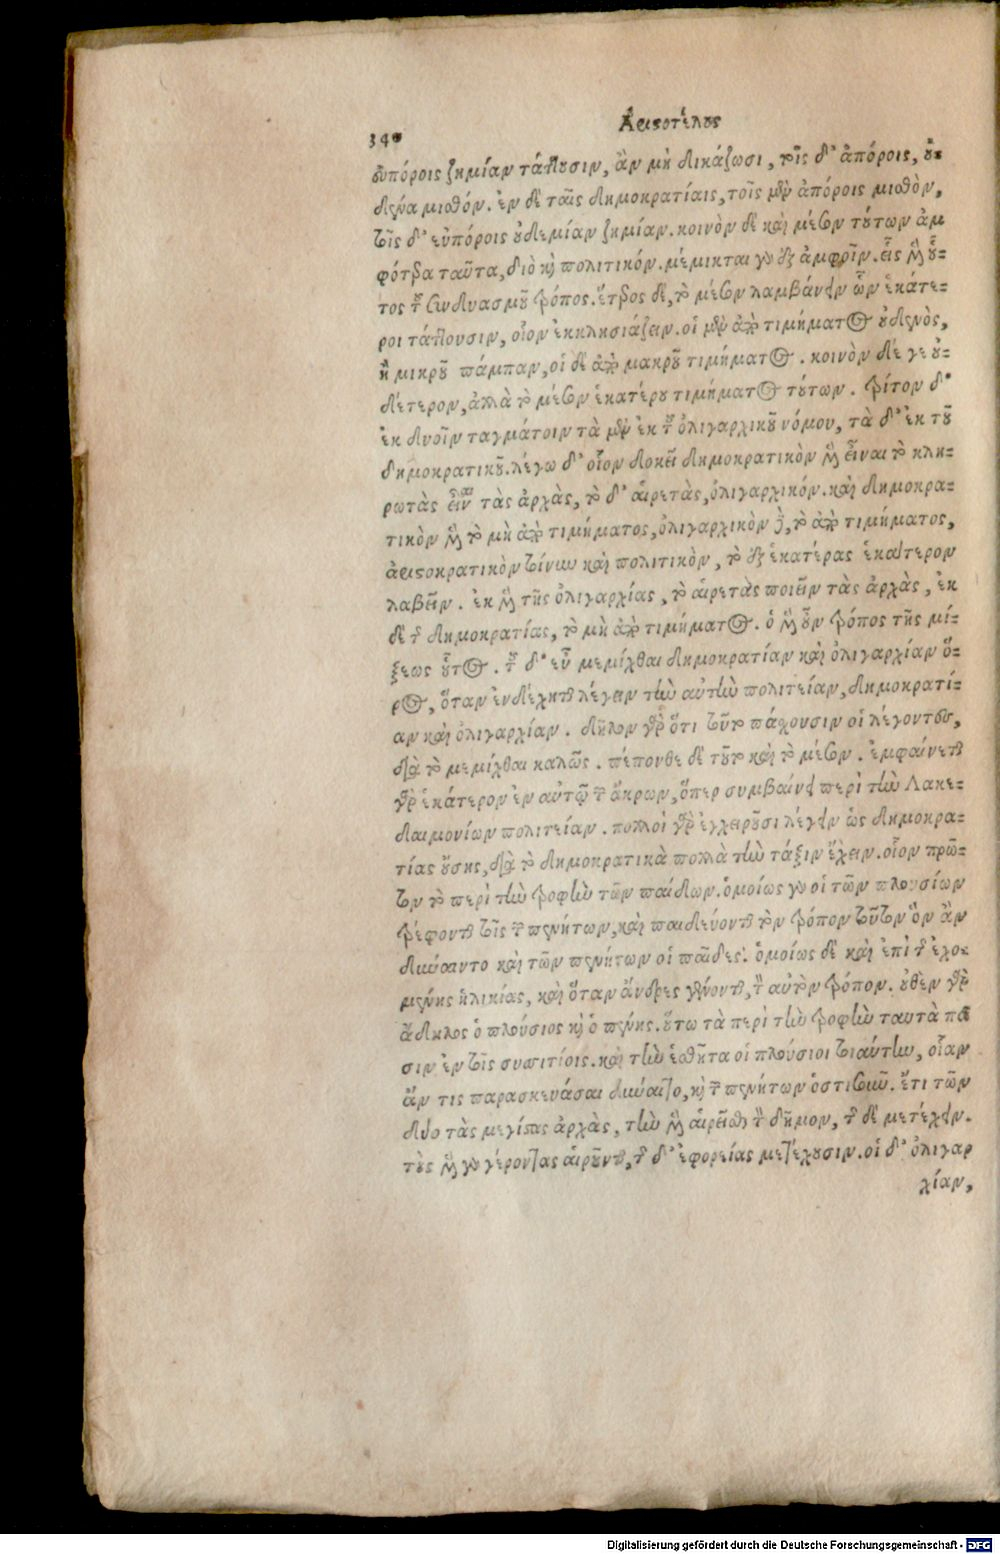 340
Ἀριστοτέλους
εὐπόροις ζημίαν τάττουσιν, ἂν μὴ δικάζωσι, τοῖς δ' ἀπόροις, οὐ-
δένα μισθόν. ἐν δὲ ταῖς δημοκρατίαις, τοῖς μὲν ἀπόροις μισθὸν,
τοῖς δ' εὐπόροις οὐδεμίαν ζημίαν. κοινὸν δὲ καὶ μέσον τούτων ἀμ
φότερα ταῦτα, διὸ καὶ πολιτικόν. μέμικται γὰρ ἐξ ἀμφοῖν. εἷς μὲν οὗ-
τος τοῦ συνδυασμοῦ τρόπος. ἕτερος δὲ, τὸ μέσον λαμβάνειν ὧν ἑκάτε-
ροι τάττουσιν, οἷον ἐκκλησιάζειν. οἱ μὲν ἀπὸ τιμήματος οὐδενὸς,
ἢ μικροῦ πάμπαν, οἱ δὲ ἀπὸ μακροῦ τιμήματος. κοινὸν δέ γε οὐ-
δέτερον, ἀλλὰ τὸ μέσον ἑκατέρου τιμήματος τούτων. τρίτον δ'
ἐκ δυοῖν ταγμάτοιν τὰ μὲν ἐκ τοῦ ὀλιγαρχικοῦ νόμου, τὰ δ' ἐκ τοῦ
δημοκρατικοῦ. λέγω δ' οἷον δοκεῖ δημοκρατικὸν μὲν εἶναι τὸ κλη-
ρωτὰς εἶναι τὰς ἀρχὰς, τὸ δ' αἱρετὰς, ὀλιγαρχικόν. καὶ δημοκρα-
τικὸν μὲν τὸ μὴ ἀπὸ τιμήματος, ὀλιγαρχικὸν δὲ, τὸ ἀπὸ τιμήματος,
ἀριστοκρατικὸν τοίνυν καὶ πολιτικὸν, τὸ ἐξ ἑκατέρας ἑκάτερον
λαβεῖν. ἐκ μὲν τῆς ὀλιγαρχίας, τὸ αἱρετὰς ποιεῖν τὰς ἀρχὰς, ἐκ
δὲ τῆς δημοκρατίας, τὸ μὴ ἀπὸ τιμήματος. ὁ μὲν οὖν τρόπος τῆς μί-
ξεως οὗτος. τοῦ δ' εὖ μεμίχθαι δημοκρατίαν καὶ ὀλιγαρχίαν ὅ-
ρος, ὅταν ἐνδέχηται λέγειν τὴν αὐτὴν πολιτείαν, δημοκρατί-
αν καὶ ὀλιγαρχίαν. δῆλον γὰρ ὅτι τοῦτο πάσχουσιν οἱ λέγοντες,
διὰ τὸ μεμίχθαι καλῶς. πέπονθε δὲ τοῦτο καὶ τὸ μέσον. ἐμφαίνεται
γὰρ ἑκάτερον ἐν αὐτῷ τῶν ἄκρων, ὅπερ συμβαίνει περὶ τὴν Λακε-
δαιμονίων πολιτείαν. πολλοὶ γὰρ ἐγχειροῦσι λέγειν ὡς δημοκρα-
τίας οὔσης, διὰ τὸ δημοκρατικὰ πολλὰ τὴν τάξιν ἔχειν. οἷον πρῶ-
τον τὸ περὶ τὴν τροφὴν τῶν παίδων. ὁμοίως γὰρ οἱ τῶν πλουσίων
τρέφονται τοῖς τῶν πενήτων, καὶ παιδεύονται τὸν τρόπον τοῦτον ὃν ἂν
δύναιντο καὶ τῶν πενήτων οἱ παῖδες. ὁμοίως δὲ καὶ ἐπὶ τῆς ἐχο-
μένης ἡλικίας, καὶ ὅταν ἄνδρες γένωνται, τὸν αὐτὸν τρόπον. οὐθὲν γὰρ
ἄδηλος ὁ πλούσιος καὶ ὁ πένης. οὕτω τὰ περὶ τὴν τροφὴν ταυτὰ πᾶ
σιν ἐν τοῖς συσσιτίοις. καὶ τὴν ἐσθῆτα οἱ πλούσιοι τοιαύτην, οἵαν
ἄν τις παρασκευάσαι δύναιτο, καὶ τῶν πενήτων ὁστισοῦν. ἔτι τῶν
δύο τὰς μεγίστας ἀρχὰς, τὴν μὲν αἱρεῖσθαι τὸν δῆμον, τῆς δὲ μετέχειν.
τοὺς μὲν γὰρ γέροντας αἱροῦνται, τῆς δ' ἐφορείας μετέχουσιν. οἱ δ' ὀλιγαρ
χίαν,
Digitalisierung gefördert durch die Deutsche Forschungsgemeinschaft - DFG